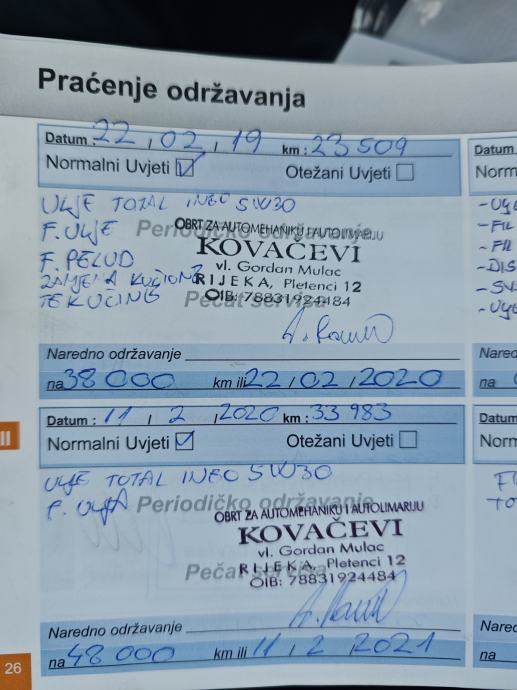 Praćenje održavanja
Datum : 22 , 02 , 19 km : 23 509
Normalni Uvjeti Otežani Uvjeti
ULJE TOTAL INEO 5W30
F. ULJE
F. PELUD
ZAMJENA KOČIONE
TEKUĆINE
Periodičko održavanje
OBRT ZA AUTOMEHANIKU I AUTOLIMARIJU
KOVAČEVI
vl. Gordan Mulac
RIJEKA, Pletenci 12
OIB: 78831924484
Pečat servisa
Naredno održavanje
na 38 000 km ili 22 / 02 / 2020
Datum : 11 / 2 , 2020 km : 33 983
Normalni Uvjeti Otežani Uvjeti
ULJE TOTAL INEO 5W30
F. ULJA
Periodičko održavanje
OBRT ZA AUTOMEHANIKU I AUTOLIMARIJU
KOVAČEVI
vl. Gordan Mulac
RIJEKA, Pletenci 12
OIB: 78831924484
Pečat servisa
Naredno održavanje
na 48 000 km ili 11 / 2 , 2021
26
II
Datum
Norm
- FIL
- FIL
- DIS
Nared
na
Datum
Norm
Nared
na